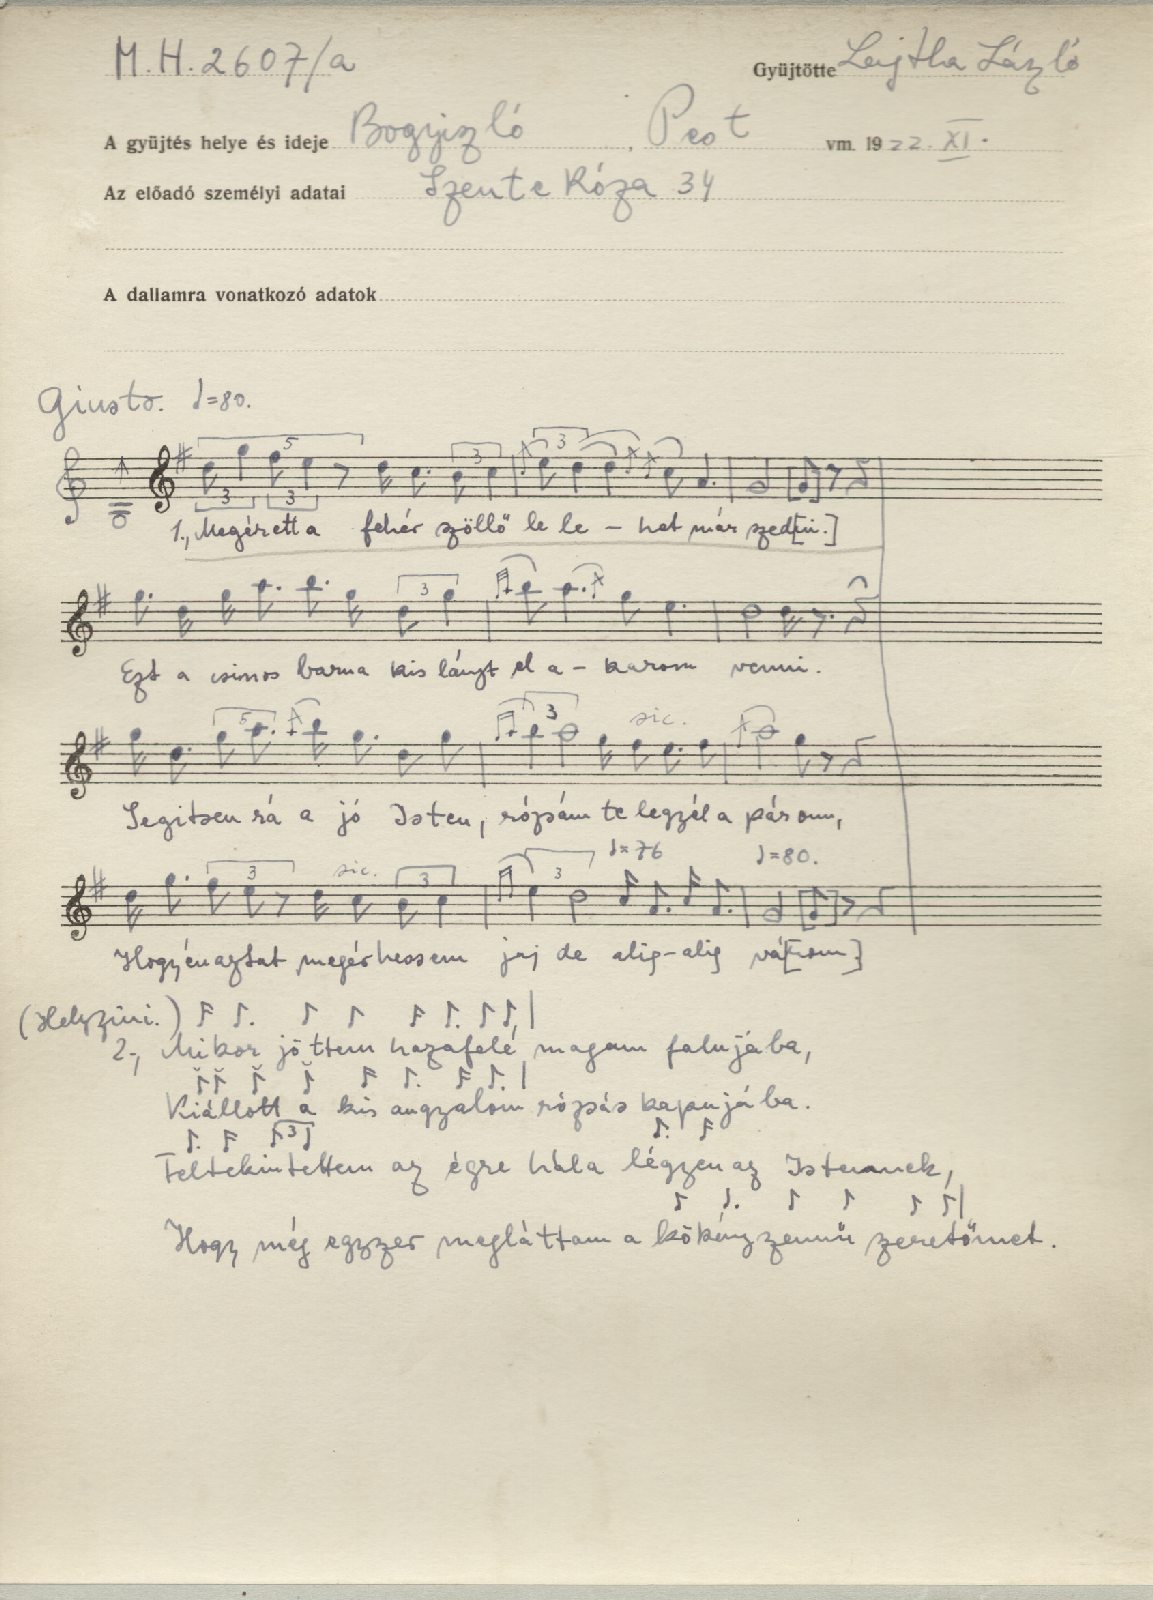 M.H. 2607/a
Gyüjtötte Lajtha László
A gyüjtés helye és ideje Bogyiszló, Pest vm. 1922. XI.
Az előadó személyi adatai Szente Róza 34
A dallamra vonatkozó adatok
Giusto. ♩=80.
5 3 3 3 3
1., Megérett a fehér szöllő le le – het már szed[ni.]
3
Ezt a csinos barna kis lányt el a – karom venni.
5 3 sic.
Segitsen rá a jó Isten, rózsám te legyél a párom,
♩=76 ♩=80.
3 sic. 3 3
Hogy én aztat megérhessem jaj de alig-alig vá[rom]
(Helyzini.)
2., Mikor jöttem hazafelé magam falujába,
Kiállott a kis angyalom rózsás kapujába.
3
Feltekintettem az égre hála légyen az Istennek,
Hogy még egyzer megláttam a kökényzemü zeretőmet.